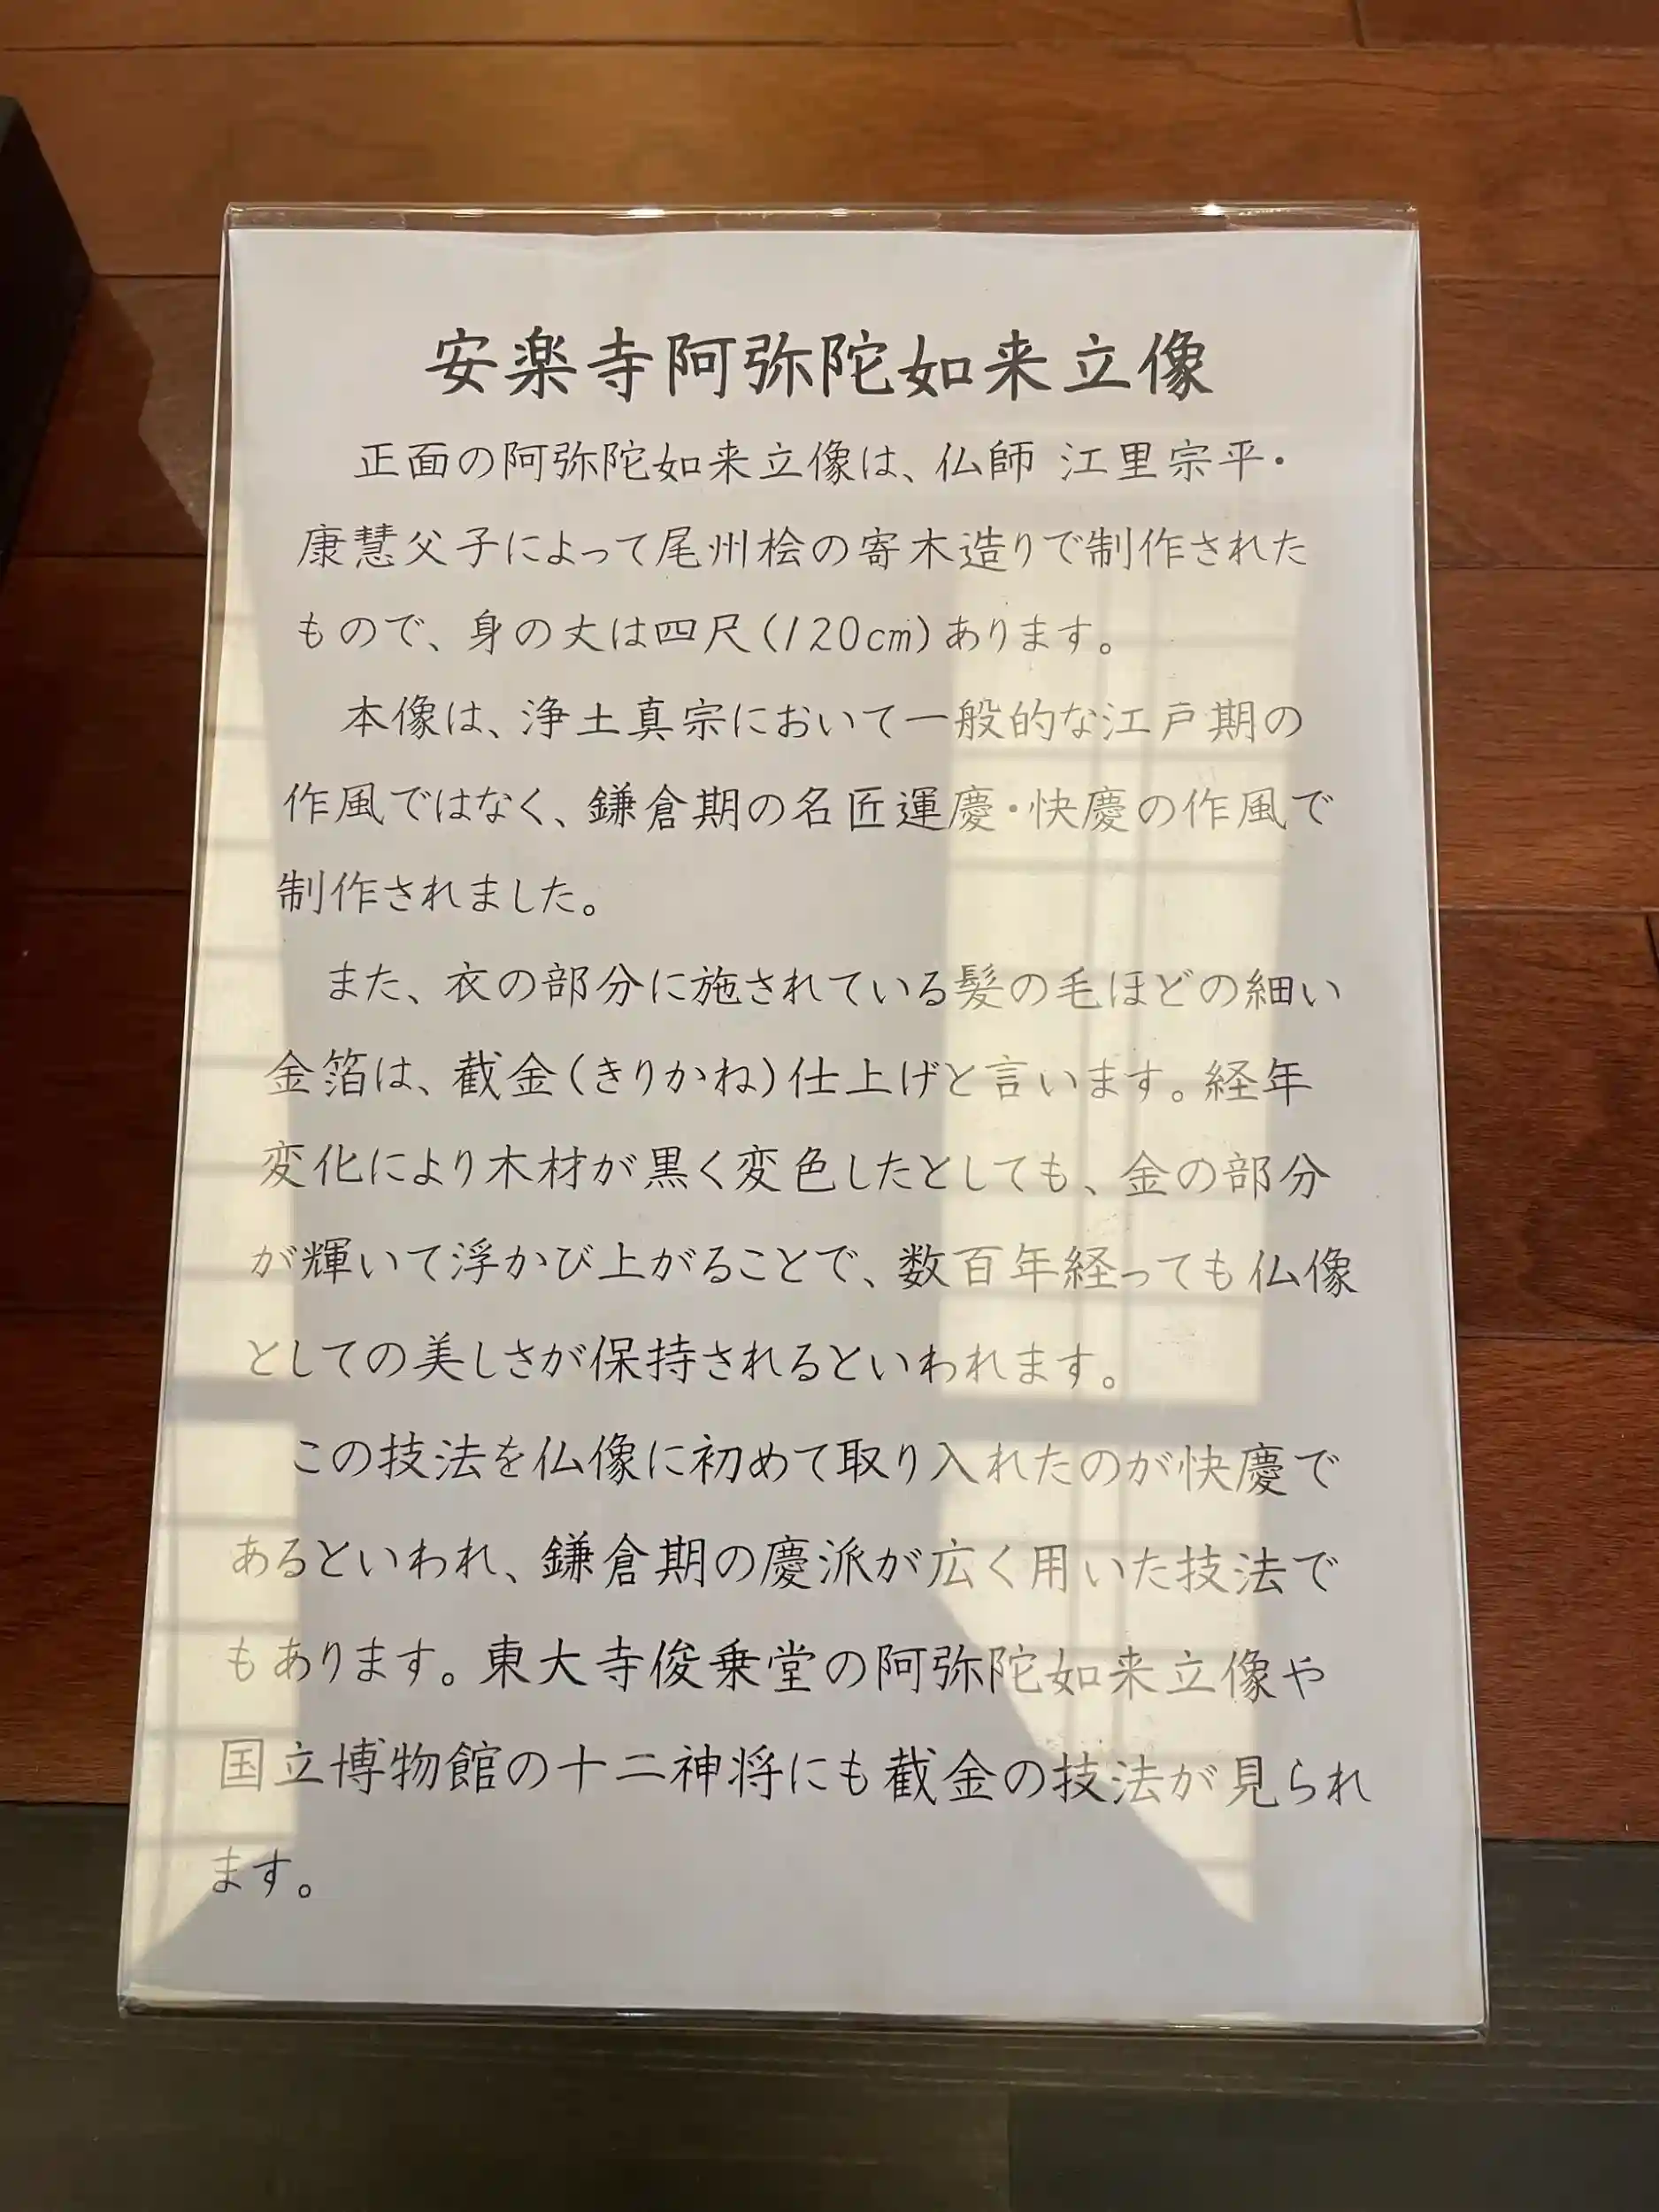 安楽寺阿弥陀如来立像
正面の阿弥陀如来立像は、仏師 江里宗平・
康慧父子によって尾州桧の寄木造りで制作された
もので、身の丈は四尺(120cm)あります。
本像は、浄土真宗において一般的な江戸期の
作風ではなく、鎌倉期の名匠運慶・快慶の作風で
制作されました。
また、衣の部分に施されている髪の毛ほどの細い
金箔は、截金(きりかね)仕上げと言います。経年
変化により木材が黒く変色したとしても、金の部分
が輝いて浮かび上がることで、数百年経っても仏像
としての美しさが保持されるといわれます。
この技法を仏像に初めて取り入れたのが快慶で
あるといわれ、鎌倉期の慶派が広く用いた技法で
もあります。東大寺俊乗堂の阿弥陀如来立像や
国立博物館の十二神将にも截金の技法が見られ
ます。